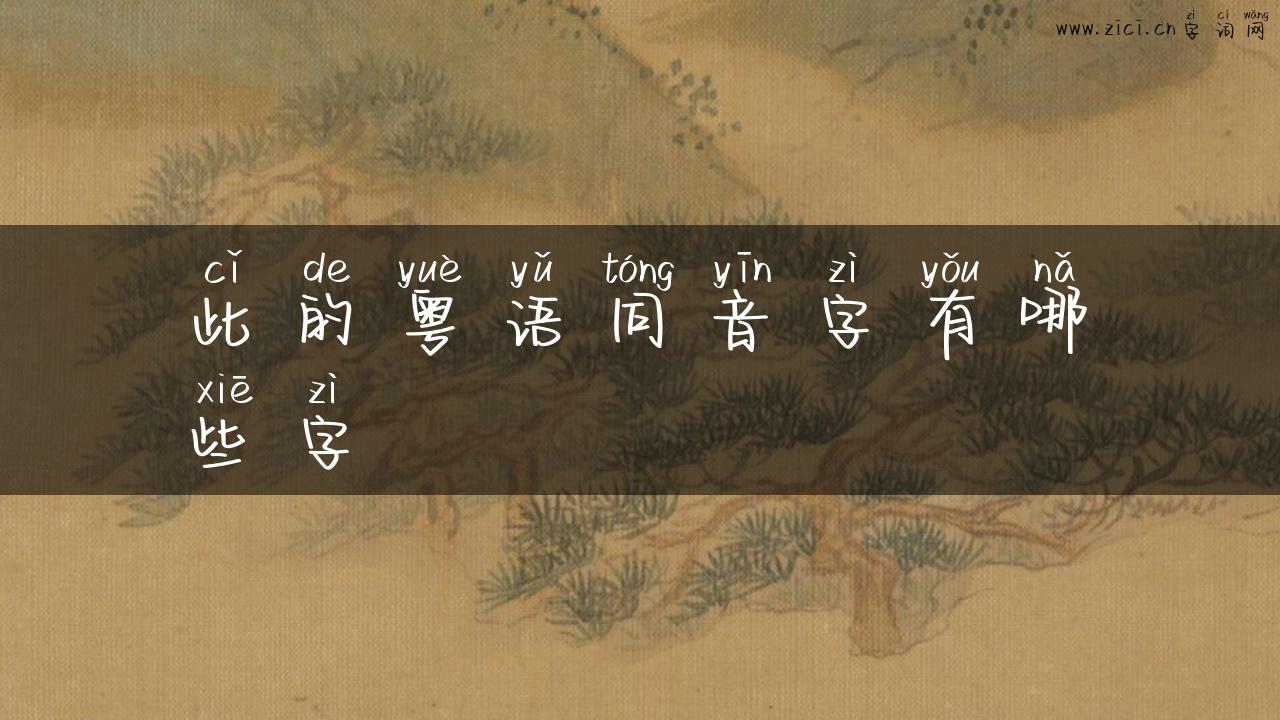 www.zici.cn 字词网
zì cí wǎng
cǐ de yuè yǔ tóng yīn zì yǒu nǎ
此的粤语同音字有哪
xiē zì
些字